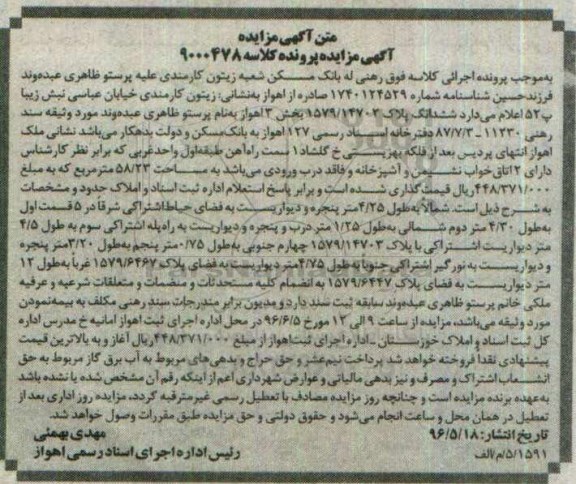 متن آگهی مزایده
آگهی مزایده پرونده کلاسه ۹۰۰۰۴۷۸
به‌موجب پرونده اجرائی کلاسه فوق رهنی له بانک مسکن شعبه زیتون کارمندی علیه پرستو ظاهری عبده‌وند
فرزند حسین شناسنامه شماره ۱۷۴۰۱۲۴۵۲۹ صادره از اهواز به‌نشانی: زیتون کارمندی خیابان عباسی نبش زیبا
پ۵۲ اعلام می‌دارد ششدانگ پلاک ۱۵۷۹/۱۴۷۰۲ بخش ۳ اهواز به‌نام پرستو ظاهری عبده‌وند مورد وثیقه سند
رهنی ۱۱۲۳۰ - ۸۷/۷/۳ دفترخانه اسناد رسمی ۱۲۷ اهواز به بانک‌مسکن و دولت بدهکار می‌باشد نشانی ملک
اهواز انتهای پردیس بعد از فلکه بهزیستی خ گلشاد۱ سمت راه‌آهن طبقه‌اول واحدغربی که برابر نظر کارشناس
دارای ۲ اتاق خواب نشیمن و آشپزخانه و فاقد درب ورودی می‌باشد به مساحت ۵۸/۲۳ مترمربع که به مبلغ
۴۴۸/۳۷۱/۰۰۰ ریال قیمت‌گذاری شده است و برابر پاسخ استعلام اداره ثبت اسناد و املاک حدود و مشخصات
به شرح ذیل است. شمالاً به‌طول ۴/۲۵ متر پنجره و دیواریست به فضای حیاط اشتراکی شرقا در ۵ قسمت اول
به‌طول ۴/۳۰ متر دوم شمالی به‌طول ۱/۲۵ متر درب و پنجره و دیواریست به راه‌پله اشتراکی سوم به طول ۴/۵
متر دیواریست اشتراکی با پلاک ۱۵۷۹/۱۴۷۰۳ چهارم جنوبی به‌طول ۰/۷۵ متر پنجم به‌طول ۳/۲۰ متر پنجره
و دیواریست به نورگیر اشتراکی جنوبا به‌طول ۴/۷۵ متر دیواریست به فضای پلاک ۱۵۷۹/۶۴۶۷ غرباً به‌طول ۱۲
متر دیواریست به فضای پلاک ۱۵۷۹/۶۴۴۷ به انضمام کلیه مستحدثات و منضمات و متعلقات شرعیه و عرفیه
ملکی خانم پرستو ظاهری عبده‌وند سابقه ثبت سند دارد و مدیون برابر مندرجات سند رهنی مکلف به بیمه‌نمودن
مورد وثیقه می‌باشد، مزایده از ساعت ۹ الی ۱۲ مورخ ۹۶/۶/۵ در محل اداره اجرای ثبت اهواز امانیه خ مدرس اداره
کل ثبت اسناد و املاک خوزستان - اداره اجرای ثبت‌اهواز از مبلغ ۴۴۸/۳۷۱/۰۰۰ ریال آغاز و به بالاترین قیمت
پیشنهادی نقدا فروخته خواهد شد پرداخت نیم‌عشر و حق حراج و بدهی‌های مربوط به آب برق گاز مربوط به حق
انشعاب اشتراک و مصرف و نیز بدهی مالیاتی و عوارض شهرداری اعم از اینکه رقم آن مشخص شده یا نشده باشد
به‌عهده برنده مزایده است و چنانچه روز مزایده مصادف با تعطیل رسمی غیرمترقبه گردد، مزایده روز اداری بعد از
تعطیل در همان محل و ساعت انجام می‌شود و حقوق دولتی و حق مزایده طبق مقررات وصول خواهد شد.
تاریخ انتشار: ۹۶/۵/۱۸
مهدی بهمئی
۵/۱۵۹۱/م/الف
رئیس اداره اجرای اسناد رسمی اهواز